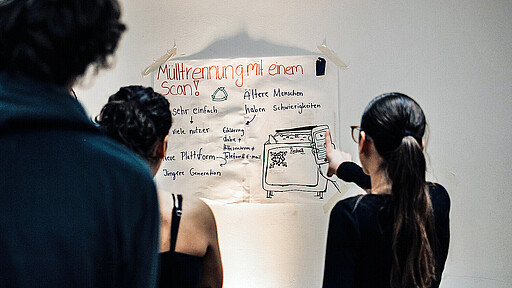 Mülltrennung mit einem
Scan!
sehr einfach
viele nutzer
neue Plattform
Jüngere Generation
Ältere Menschen
haben Schwierigkeiten
Erklärung
Telefon & E-mail